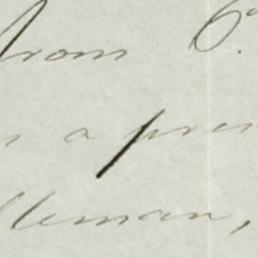 from 6
a pres
lleman,